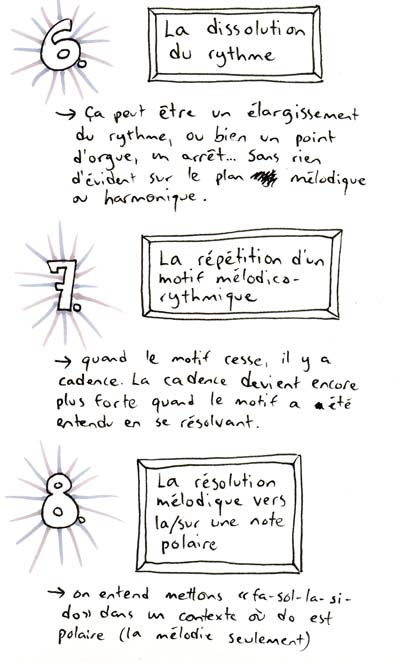 6.
La dissolution
du rythme
→ Ça peut être un élargissement
du rythme, ou bien un point
d'orgue, un arrêt... Sans rien
d'évident sur le plan mélodique
ou harmonique.
7.
La répétition d'un
motif mélodico-
rythmique
→ quand le motif cesse, il y a
cadence. La cadence devient encore
plus forte quand le motif a été
entendu en se résolvant.
8.
La résolution
mélodique vers
la/sur une note
polaire
→ on entend mettons «fa-sol-la-si-
do» dans un contexte où do est
polaire (la mélodie seulement)